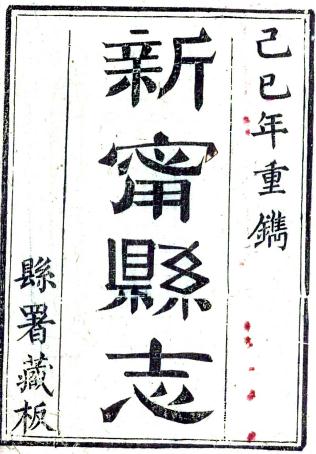 己巳年重鐫
新甯縣志
縣署藏板